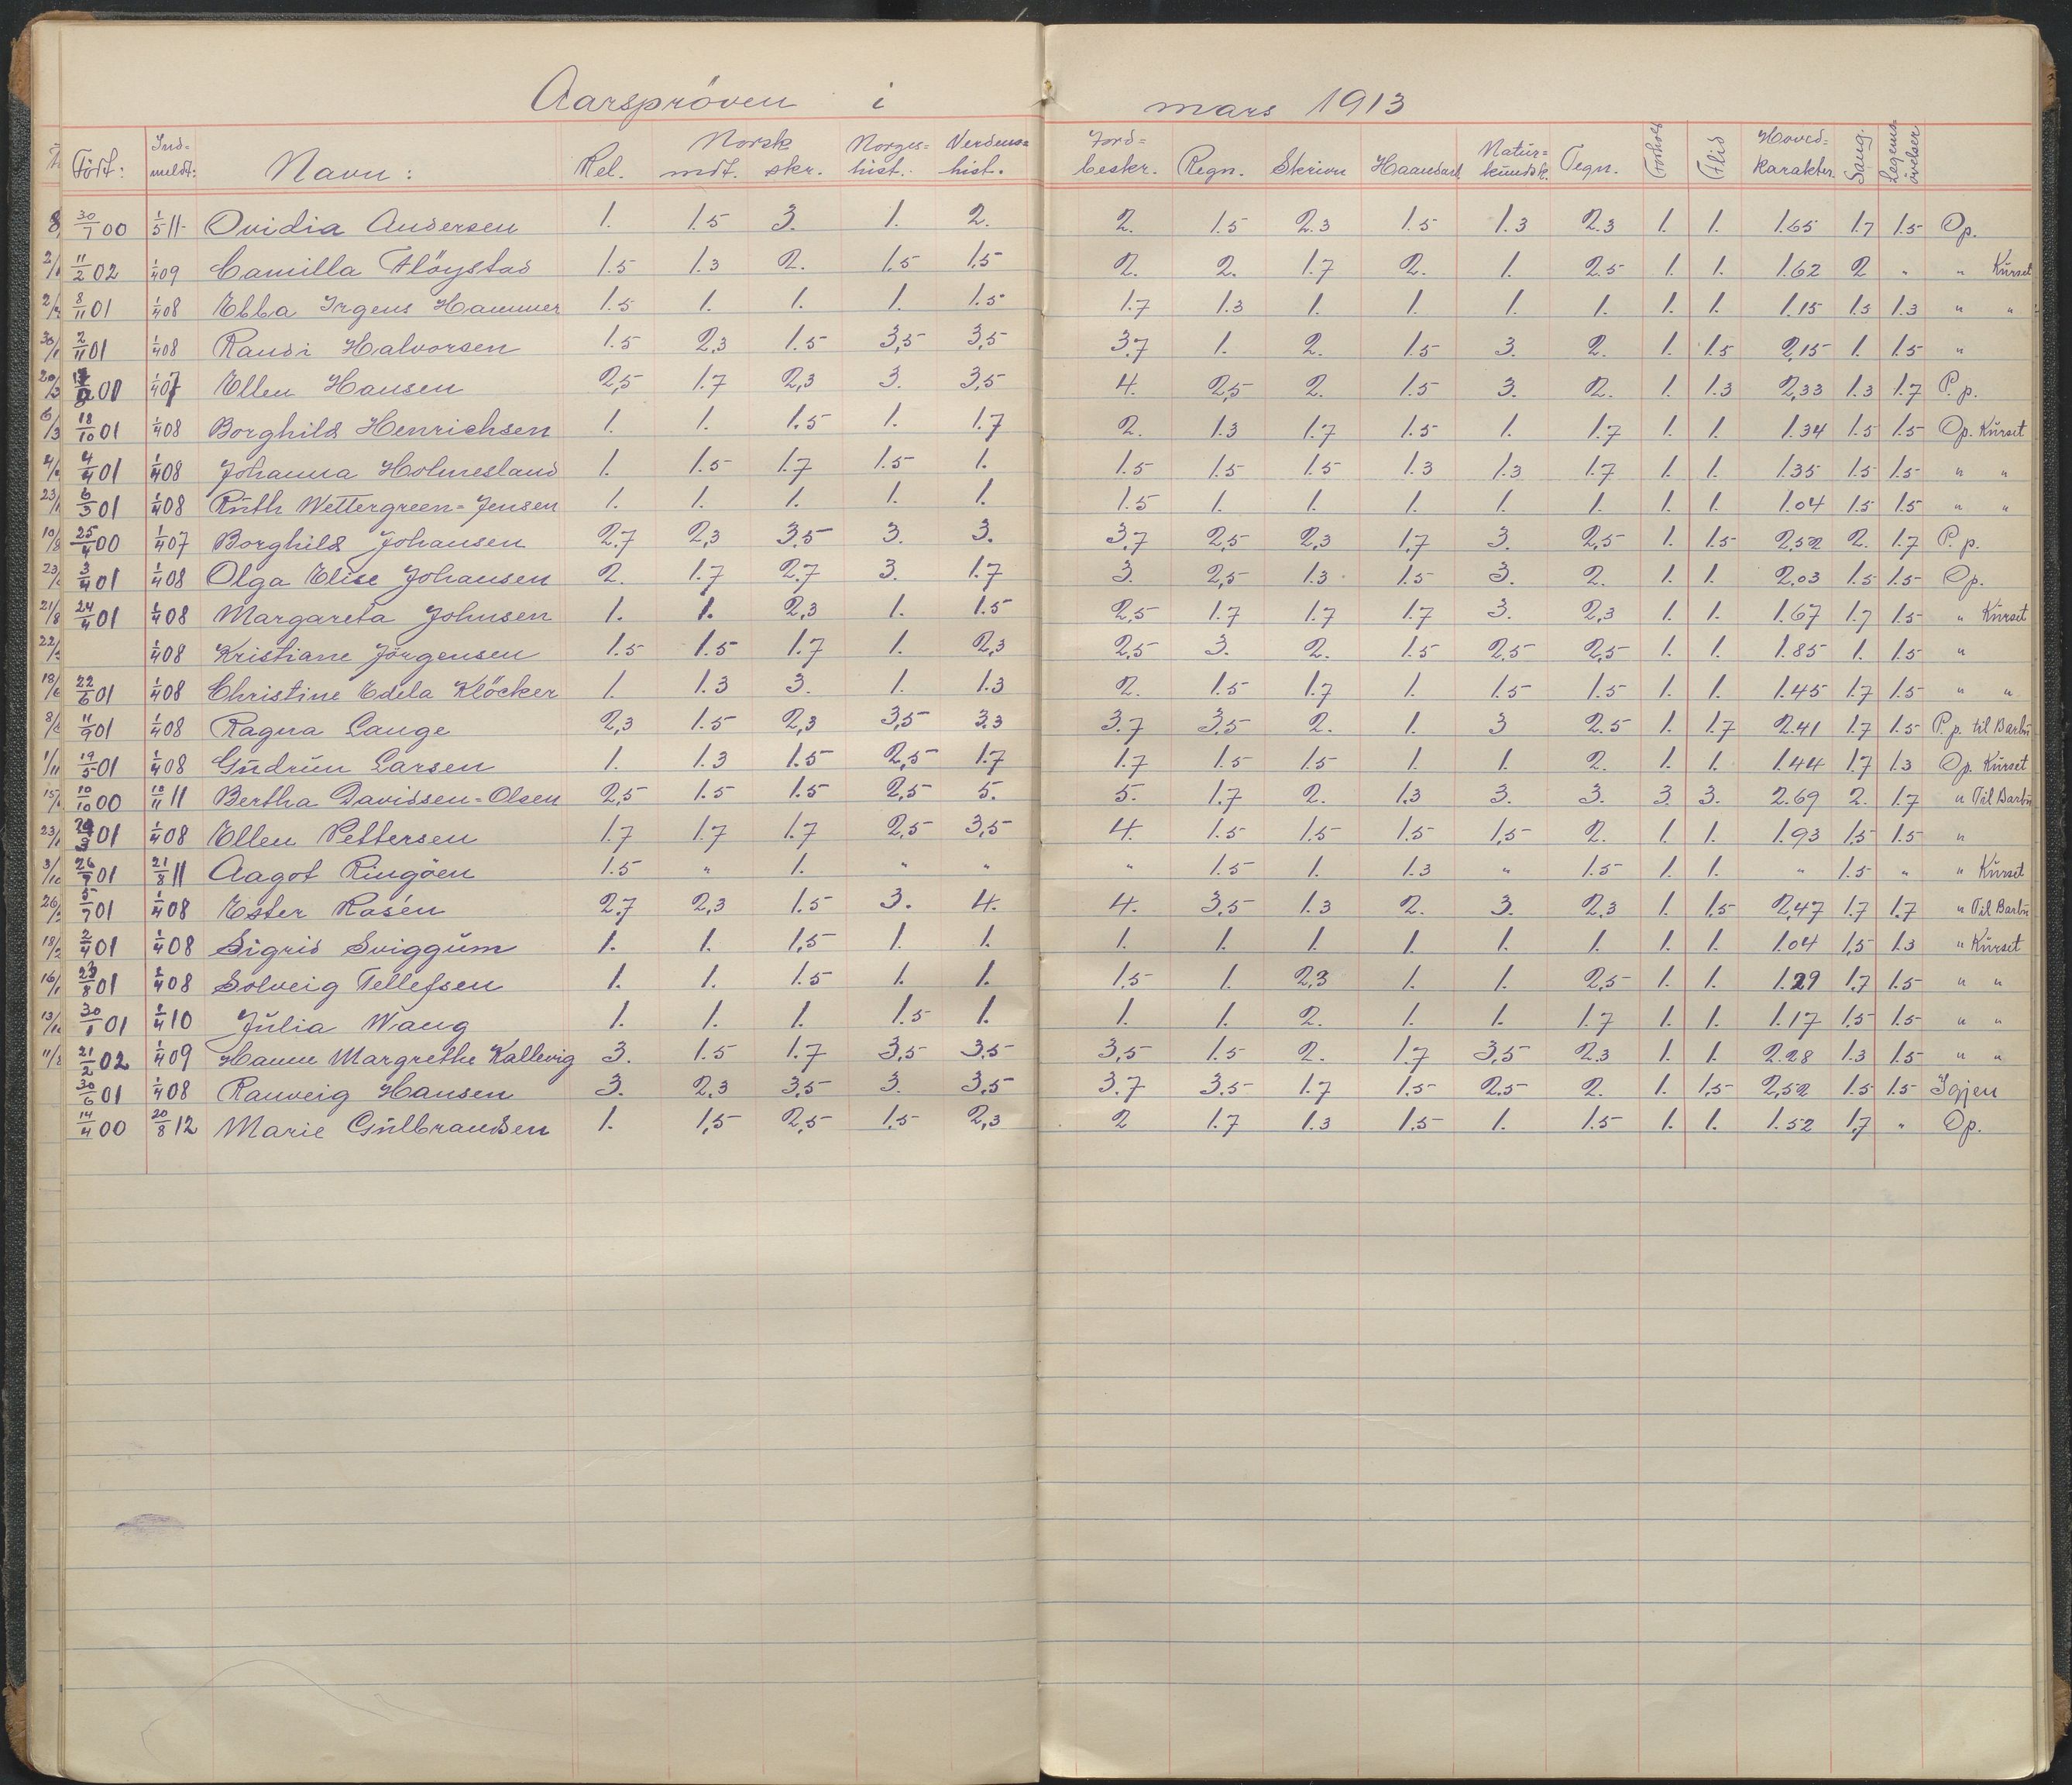 Aarspröven i mars 1913
Född: Ind-meldt: Navn: Rel. Norsk mdt. skr. Norges-hist. Verdens-hist. Jord-beskr. Regn. Skrivn Haandarb. Natur-kundsk. Tegn. Forhold Flid Hoved-karakter. Sang. Legems-övelser
30/7 00 1/5 11 Ovidia Andersen 1. 1.5 3. 1. 2. 2. 1.5 2.3 1.5 1.3 2.3 1. 1. 1.65 1.7 1.5 Op.
11/2 02 1/4 09 Camilla Flöystad 1.5 1.3 2. 1.5 1.5 2. 2. 1.7 2. 1. 2.5 1. 1. 1.62 2 " " Kurset
8/11 01 1/4 08 Ebba Irgens Hammer 1.5 1. 1. 1. 1.5 1.7 1.3 1. 1. 1. 1. 1. 1. 1.15 1.5 1.3 " "
2/11 01 1/4 08 Randi Halvorsen 1.5 2,3 1.5 3,5 3,5 3.7 1. 2. 1.5 3. 2. 1. 1.5 2,15 1 1.5 "
01 1/4 07 Ellen Hansen 2,5 1.7 2,3 3. 3,5 4. 2,5 2. 1.5 3. 2. 1. 1.3 2,33 1.3 1.7 P.p.
18/10 01 1/4 08 Borghild Henrichsen 1. 1. 1.5 1. 1.7 2. 1.3 1.7 1.5 1. 1.7 1. 1. 1.34 1.5 1.5 Op. Kurset
4/4 01 1/4 08 Johanna Holmesland 1. 1.5 1.7 1.5 1. 1.5 1.5 1.5 1.3 1.3 1.7 1. 1. 1.35 1.5 1.5 " "
6/3 01 1/4 08 Ruth Wettergreen-Jensen 1. 1. 1. 1. 1. 1.5 1. 1. 1. 1. 1. 1. 1. 1.04 1.5 1.5 " "
25/4 00 1/4 07 Borghild Johansen 2.7 2,3 3.5 3. 3. 3.7 2,5 2,3 1,7 3. 2,5 1. 1.5 2,52 2. 1.7 P.p.
3/4 01 1/4 08 Olga Elise Johansen 2. 1.7 2.7 3. 1.7 3. 2,5 1.3 1.5 3. 2. 1. 1. 2.03 1.5 1.5 Op.
24/4 01 1/4 08 Margareta Johnsen 1. 1. 2,3 1. 1.5 2,5 1.7 1.7 1.7 3. 2,3 1. 1. 1.67 1.7 1.5 " Kurset
1/4 08 Kristiane Jörgensen 1.5 1.5 1.7 1. 2,3 2,5 3. 2. 1.5 2,5 2,5 1. 1. 1.85 1. 1.5 "
22/6 01 1/4 08 Christine Edela Klöcker 1. 1.3 3. 1. 1.3 2. 1.5 1.7 1. 1.5 1.5 1. 1. 1.45 1.7 1.5 " "
11/9 01 1/4 08 Ragna Lange 2,3 1.5 2,3 3,5 3.3 3.7 3.5 2. 1. 3 2.5 1. 1.7 2.41 1.7 1.5 P.p. til Barbu
19/5 01 1/4 08 Gudrun Larsen 1. 1.3 1.5 2,5 1.7 1.7 1.5 1.5 1. 1. 2. 1. 1. 1.44 1.7 1.3 Op. Kurset
10/10 00 18/11 11 Bertha Davidsen-Olsen 2,5 1.5 1.5 2,5 5. 5. 1.7 2. 1.3 3. 3. 3. 3. 2.69 2. 1.7 " Til Barbu
01 1/4 08 Ellen Pettersen 1.7 1.7 1.7 2,5 3,5 4. 1.5 1.5 1.5 1,5 2. 1. 1. 1.93 1,5 1.5 "
26/9 01 21/8 11 Aagot Ringöen 1.5 " 1. " " " 1.5 1. 1.3 " 1.5 1. 1. " 1.5 " " Kurset
5/7 01 1/4 08 Ester Rosén 2.7 2,3 1.5 3. 4. 4. 3,5 1.3 2. 3. 2,3 1. 1.5 2,47 1.7 1.7 " Til Barbu
2/4 01 1/4 08 Sigrid Sviggum 1. 1. 1,5 1. 1. 1. 1. 1. 1. 1. 1. 1. 1. 1.04 1,5 1.3 " Kurset
23/8 01 1/4 08 Solveig Tellefsen 1. 1. 1.5 1. 1. 1.5 1. 2,3 1. 1. 2,5 1. 1. 1.29 1,7 1.5 " "
30/1 01 1/4 10 Julia Waug 1. 1. 1. 1.5 1. 1. 1. 2. 1. 1. 1.7 1. 1. 1.17 1,5 1.5 " "
21/2 02 1/4 09 Hanne Margrethe Kallevig 3. 1.5 1.7 3,5 3.5 3,5 1.5 2. 1.7 3,5 2.3 1. 1. 2.28 1.3 1.5 " "
30/6 01 1/4 08 Ranveig Hansen 3. 2,3 3,5 3. 3,5 3.7 3.5 1.7 1.5 2.5 2. 1. 1,5 2,52 1.5 1.5 Igjen
14/4 00 20/8 12 Marie Gulbrandsen 1. 1,5 2,5 1,5 2,3 2 1.7 1.3 1.5 1. 1.5 1. 1. 1.52 1,7 " Op.